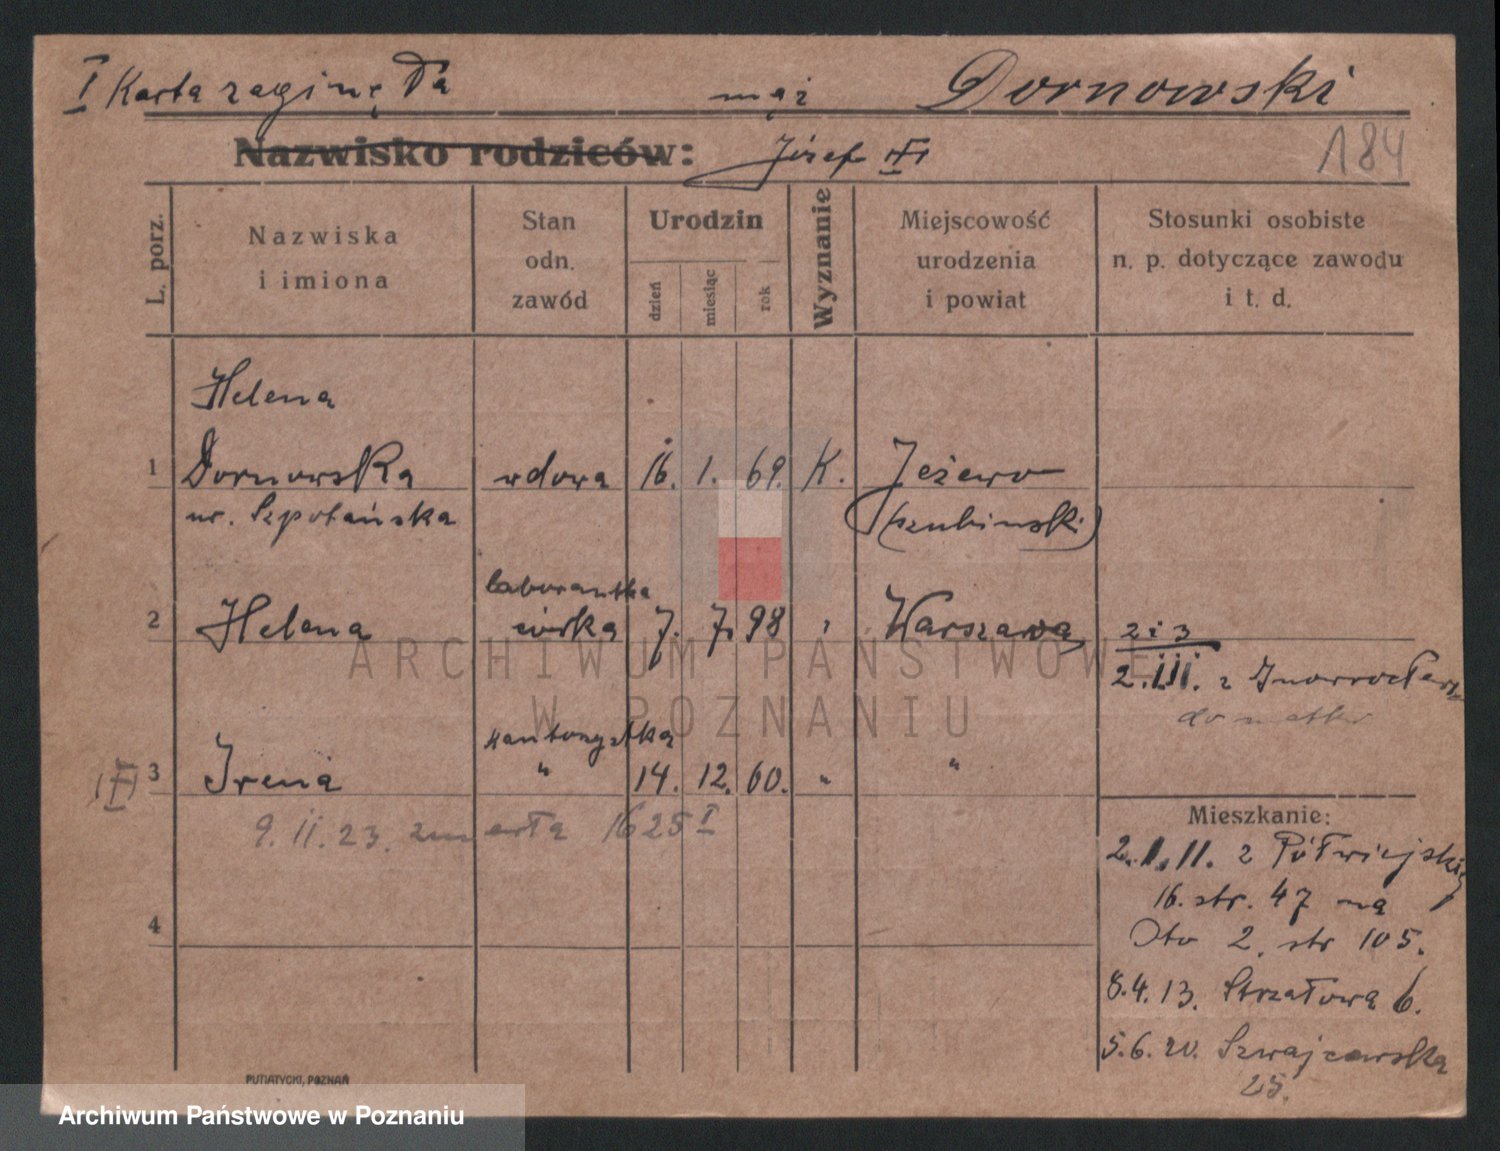 I Karta zaginęła mąż Dornowski
Nazwisko rodziców: Józef
184
L. porz.
Nazwiska
i imiona
Stan
odn.
zawód
Urodzin
dzień
miesiąc
rok
Wyznanie
Miejscowość
urodzenia
i powiat
Stosunki osobiste
n. p. dotyczące zawodu
i t. d.
Helena
1 Dornowska wdowa 16. 1. 69. K. Jeżewo
ur. Szpotańska (szubiński)
laborantka
2 Helena córka 7. 7. 98 " Warszawa
2 i 3
2.III. z Inowrocławia
do matki
kantorzystka
3 Irena " 14. 12. 60. " "
9. II. 23. zmarła 1625 I
4
Mieszkanie:
2.1.11. z Półwiejskiej
16. str. 47 na
Oto 2. str 105.
8.4.13. Strzałowa 6.
5.6.20. Szwajcarska
25.
PUTIATYCKI, POZNAŃ
ARCHIWUM PAŃSTWOWE
W POZNANIU
Archiwum Państwowe w Poznaniu